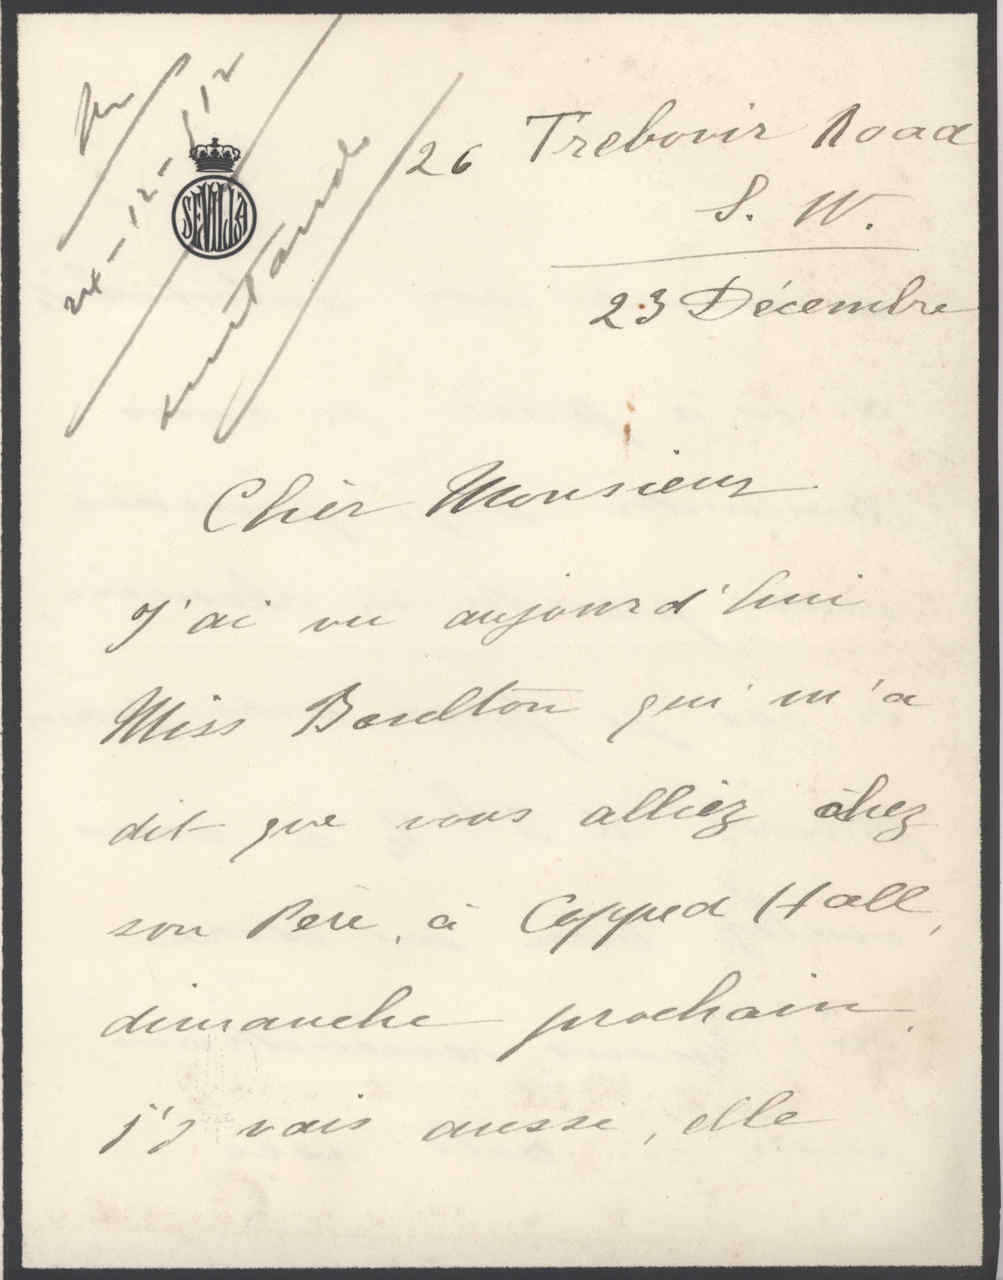 24-12-912
SEVILLA
26 Trebovir Road
S. W.
23 Décembre
Cher Monsieur
J'ai vu aujourd'hui
Miss Boulton qui m'a
dit que vous alliez chez
son Père, à Copped Hall,
dimanche prochain.
j'y vais aussi, elle